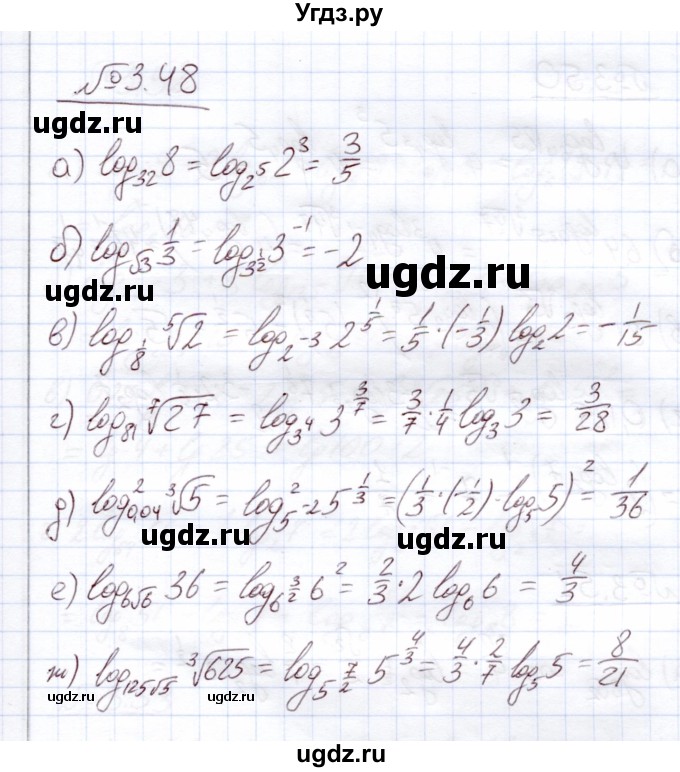 Угдз.ру
№3.48
ugdz.ru
а) log₃₂ 8 = log_{2⁵} 2³ = 3/5
б) log_{√3} 1/3 = log_{3^{1/2}} 3⁻¹ = -2
ugdz.ru ugdz.ru
в) log_{1/8} ⁵√2 = log_{2⁻³} 2^{1/5} = 1/5 · (-1/3) log₂ 2 = -1/15
ugdz.ru
г) log₈₁ ⁷√27 = log_{3⁴} 3^{3/7} = 3/7 · 1/4 log₃ 3 = 3/28
ugdz.ru
д) log²_{0,04} ³√5 = log²_{5⁻²} 5^{1/3} = (1/3 · (-1/2) · log₅ 5)² = 1/36
ugdz.ru ugdz.ru
е) log_{6√6} 36 = log_{6^{3/2}} 6² = 2/3 · 2 log₆ 6 = 4/3
ugdz.ru
ж) log_{125√5} ³√625 = log_{5^{7/2}} 5^{4/3} = 4/3 · 2/7 log₅ 5 = 8/21
ugdz.ru ugdz.ru
ugdz.ru